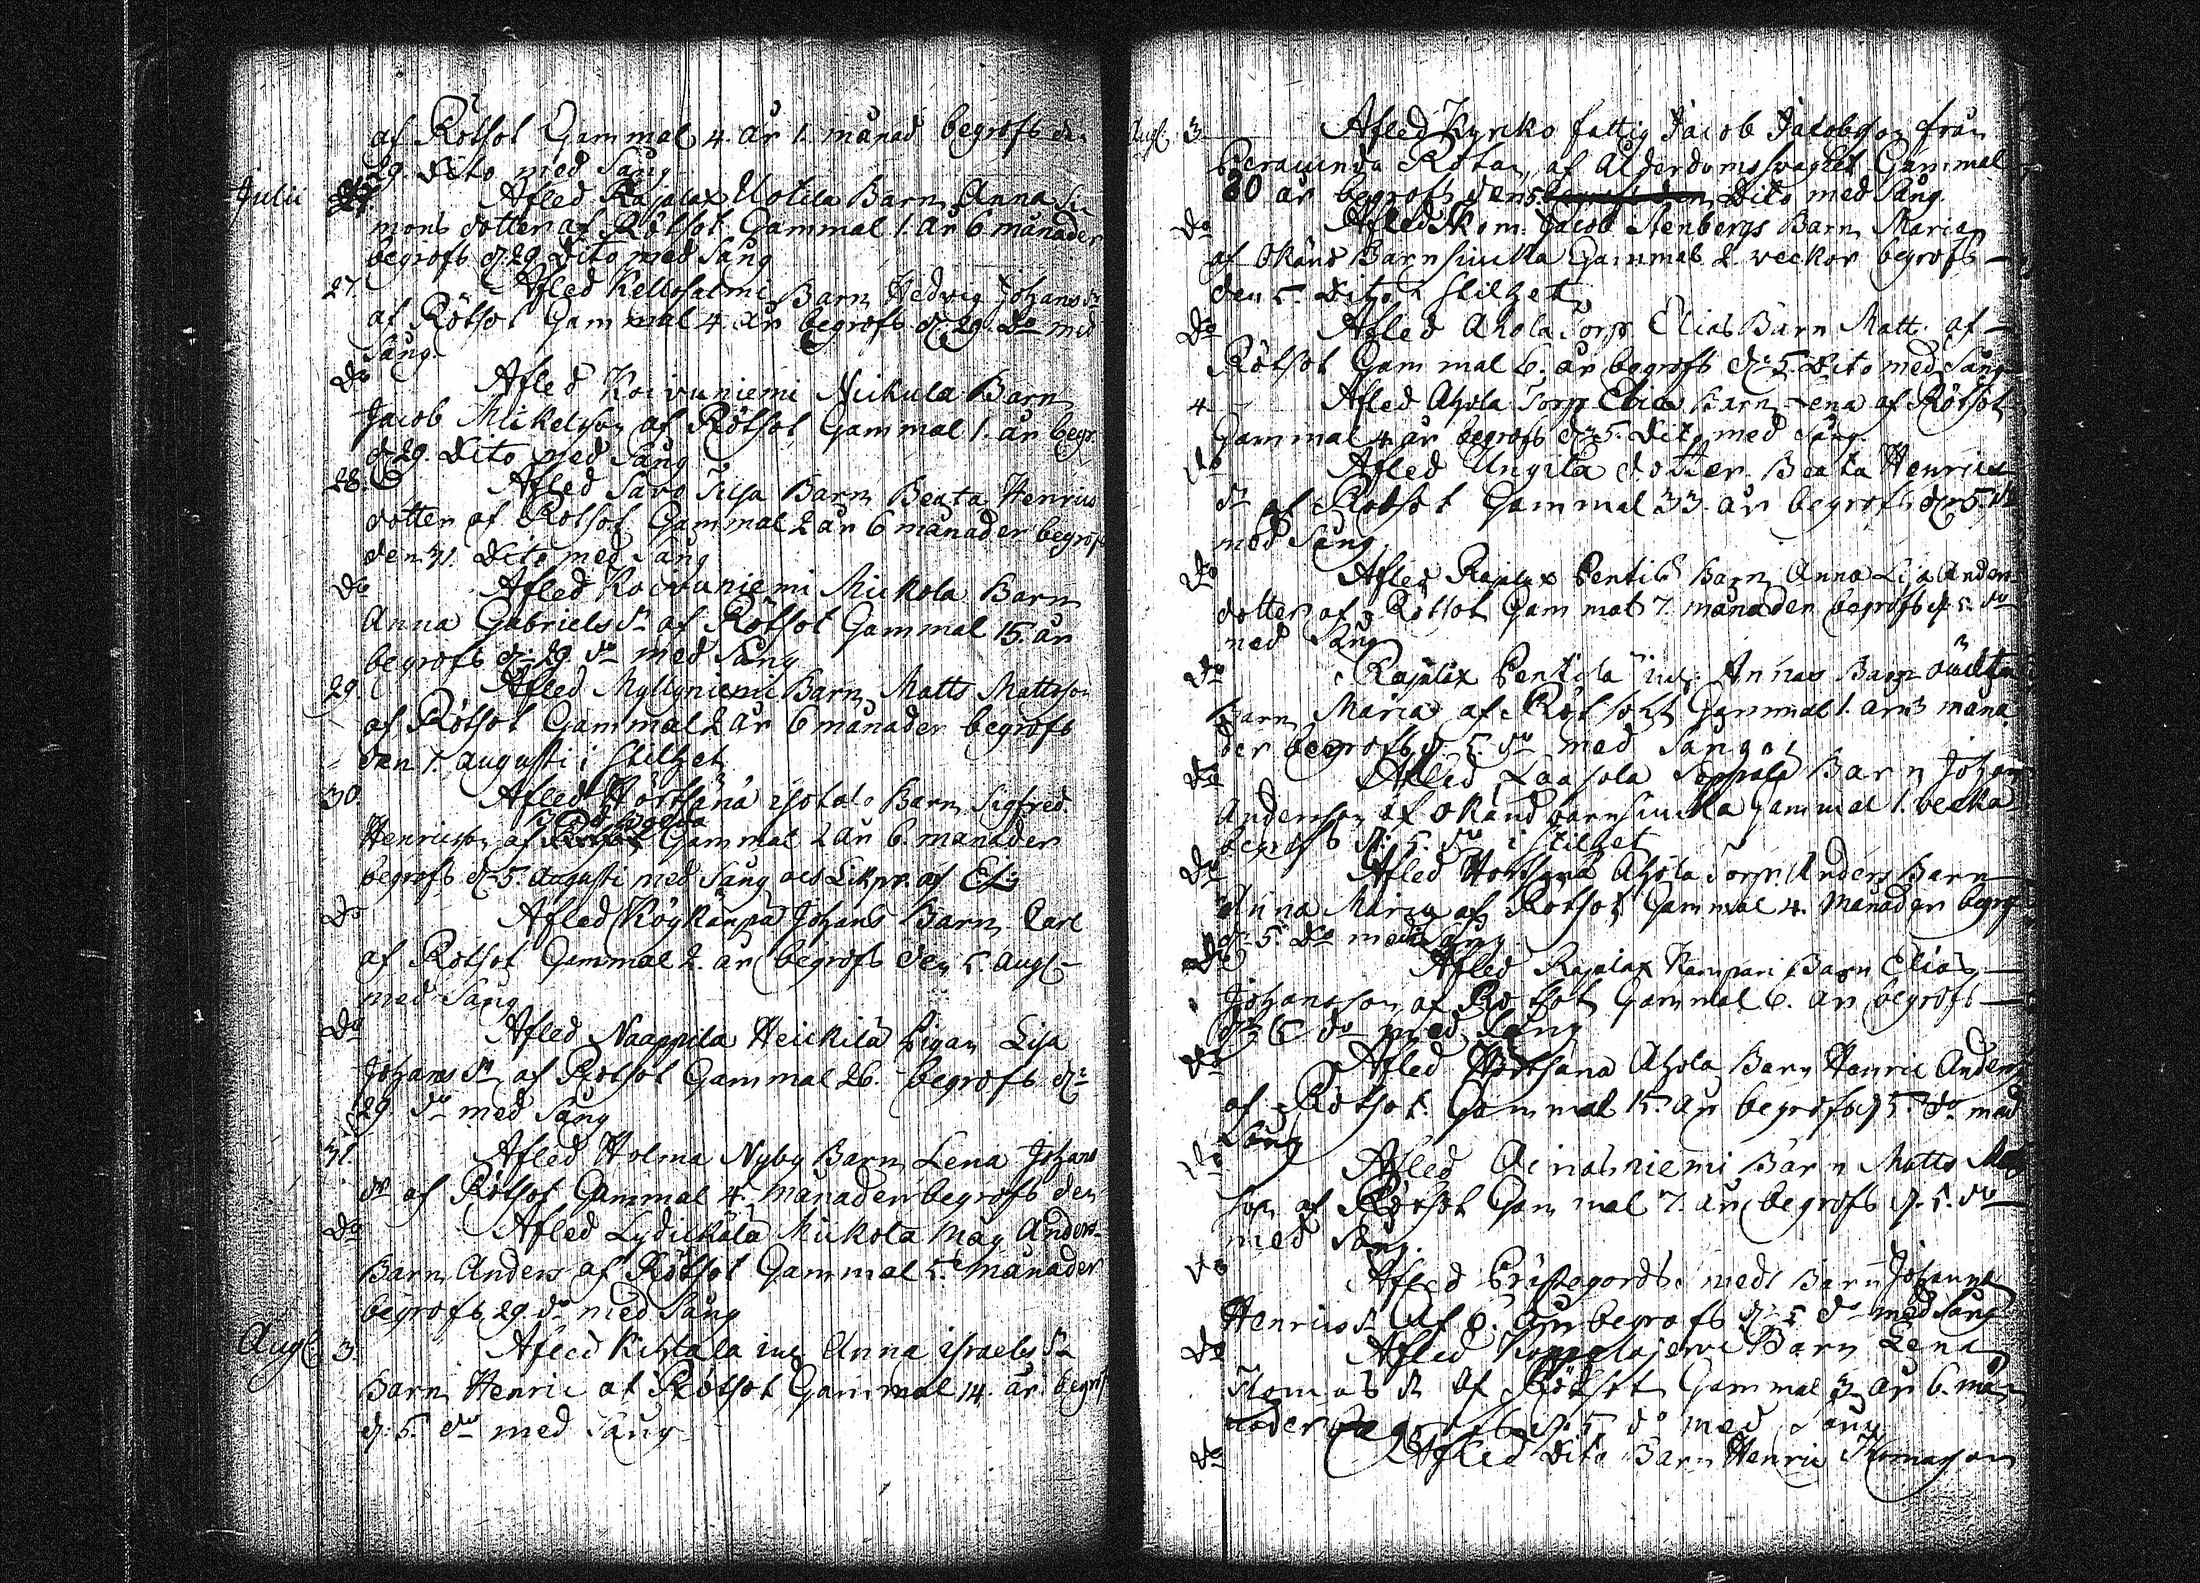 af Rötsot Gammal 4. år 1. månad begrofs d:
29. Dito med Sång
Julii 27. Afled Rajalax Uotila Barn Anna Si-
mons dotter af Rötsot Gammal 1. år 6 månader
begrofs d. 29 Dito med Sång
27. Afled Kellosalmi Barn Hedvig Johans dr
af Rötsot Gammal 4. år begrofs d. 29. Do med
Sång.
Do Afled Koivuniemi Mickula Barn
Jacob Mickelsson af Rötsot Gammal 1. år begr.
d 29. Dito med Sång
28. Afled Savo Barn Beata Henrics
dotter af Rötsot Gammal 2 år 6 månader begrof
den 31. Dito med Sång
Do Afled Koivuniemi Mickola Barn
Anna Gabriels dr af Rötsot Gammal 15. år
begrofs d: 29. do med Sång
29. Afled Myllyniemi Barn Matts Mattsson
af Rötsot Gammal 2 år 6 månader begrofs
den 1. augusti i stilhet
30. Afled Hörthänä Barn Sigfred
Henricsson af Gammal 2 år 6. månader
begrofs d 5. Augusti med Sång och Likpr. af
Do Afled Köykänpä Johans Barn Carl
af Rötsot Gammal 2. år begrofs den 5. Aug:
med Sång
Do Afled Naappila Heickilä Pigan Lisa
Johans dr af Rötsot Gammal 26. begrofs d:
29 do med Sång
31. Afled Holma Nyby Barn Lena Johans
dr af Rötsot Gammal 4. månader begrofs den
Do Afled Lydickälä Mickola Måg Anders
Barn Anders af Rötsot Gammal 5. månader
begrofs 29. do med Sång
Aug: 3. Afled Kihlala inh Anna Israels dr
Barn Henric af Rötsot Gammal 14. år begrof
d: 5. do med Sång
Aug: 3. Afled Kyrko fattig Jacob Jacobsson från
Peravainda Rotan af Ålderdoms svaghet Gammal
80 år begrofs den 5. Dito med Sång.
Do Afled Skom. Jacob Stenbergs Barn Maria
af Okänd Barnsiucka Gammal 2. veckor begrofs
den 5. Dito i stilhet
Do Afled Ahola Torp Elias Barn Matt. af
Rötsot Gammal 6. år begrofs d: 5. Dito med Sång
4 Afled Ahola Torp Elias Barn Lena af Rötsot
Gammal 4. år begrofs d: 5. Dito med Sång.
Do Afled Ungila dotter Beata Henrics
dr af Rötsot Gammal 33. år begrofs d: 5. do
med Sång.
Do Afled Rajalax Pentilä Barn Anna Lisa Anders
dotter af Rötsot Gammal 7. månader begrofs d. 5. do
med Sång
Do Rajalax Pentilä inh: Annas Barn oäckta
Barn Maria af Rötsot Gammal 1. år 3 måna
der begrofs d. 5. do med Sång
Do Afled Laasola Seppälä Barn Johan
Andersson af Okänd barnsiucka Gammal 1. vecka
begrofs d: 5. do i stilhet
Do Afled Horthana Ahola Torp. Anders Barn
Anna Maria af Rötsot Gammal 4. månader begrof
d: 5. Do med Sång
Do Afled Rajalax Kampari Barn Elias
Johansson af Rötsot Gammal 6. år begrofs
d: 6 do med Sång
Do Afled Horthana Ahola Barn Henric Anders
af Rötsot. Gammal 15. år begrofs d 5. do med
Sång
Do Afled Ainalniemi Barn Matts Matt
son af Rötsot Gammal 7. år begrofs d. 5. do
med Sång.
Do Afled Prästegords Barn Johanna
Henrics dr Af 6. år begrofs d: 5 do med Sång
Do Afled Koppelojervi Barn Lena
Thomas dr af Rötsot Gammal 3 år 6. må
nader begrofs d: 5 do med Sång
Do Afled Dito Barn Henric Thomasson